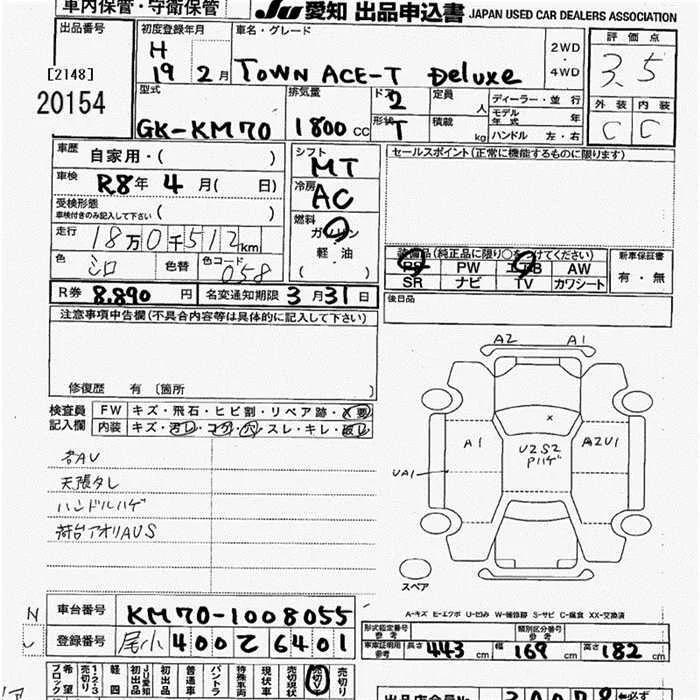 車内保管・守衛保管
JU 愛知 出品申込書 JAPAN USED CAR DEALERS ASSOCIATION
出品番号
[2148]
20154
初度登録年月
H
19 2月
車名・グレード
TOWN ACE-T Deluxe
2WD
4WD
評価点
3.5
外装 内装
C C
型式
GK-KM70
排気量
1800 cc
ドア 2
形状 T
定員 人
積載 kg
ディーラー・並行
モデル年式 年
ハンドル 左・右
車歴 自家用・( )
車検 R8年 4月( 日)
受検形態
車検付きのみ記入して下さい ( )
走行 18万0千512km
色 シロ 色替 色コード 058
R券 8.890 円 名変通知期限 3月31日
シフト MT
冷房 AC
燃料
ガソリン
軽・油
( )
セールスポイント(正常に機能するものに限ります)
装備品(純正品に限り○をつけてください)
PS PW エアB AW
SR ナビ TV カワシート
新車保証書
有・無
後日品
注意事項申告欄(不具合内容等は具体的に記入して下さい)
修復歴 有 〔箇所 〕
検査員
記入欄
FW キズ・飛石・ヒビ割・リペア跡・X要
内装 キズ・汚レ・コゲ・穴・スレ・キレ・破レ
各AU
天張タレ
ハンドルハゲ
荷台アオリAUS
A2 A1
A1
U2S2
Pハゲ
A2U1
UA1
x
スペア
A-キズ E-エクボ U-凹み W-補修跡 S-サビ C-腐食 XX-交換済
車台番号 KM70-1008055
登録番号 尾小 400 て 6401
型式指定番号 参考
類別区分番号 参考
車庫証明用参考 長さ 443 cm 幅 169 cm 高さ 182 cm
希望ブロック
1・2・3
軽四
JU愛知初出品
初出品
普通車
バントラ
特殊車両
現状車
売切現状
売切り
出品店会員